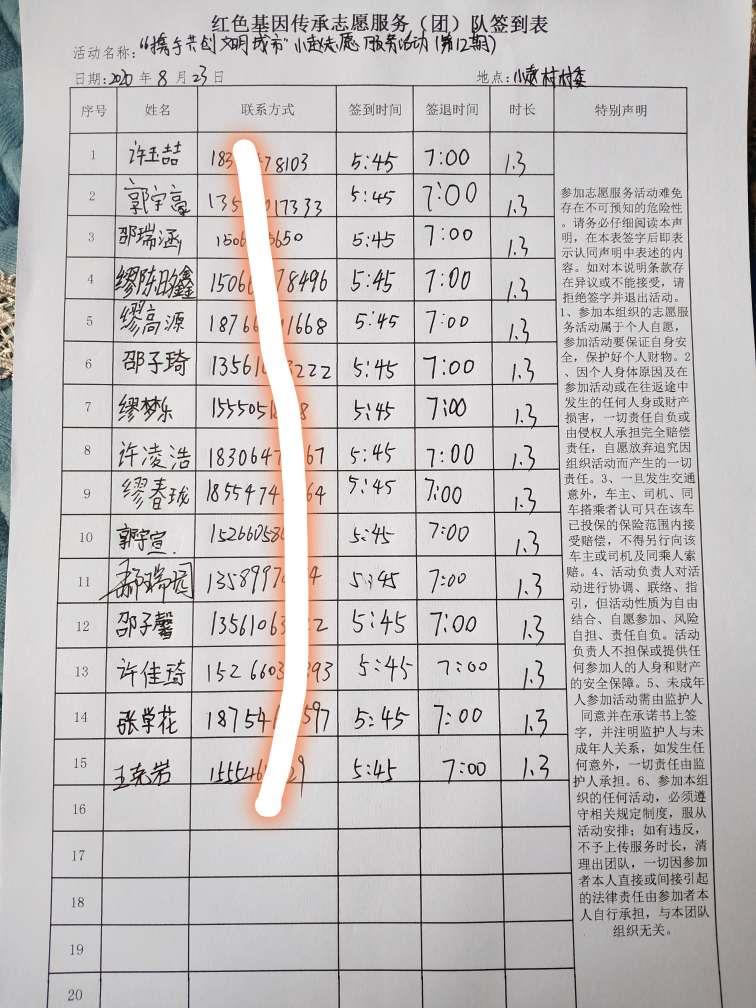 红色基因传承志愿服务（团）队签到表
活动名称：“携手共创文明城市”小赵志愿服务活动（第12期）
日期：2020年8月23日 地点：小赵村村委
序号 姓名 联系方式 签到时间 签退时间 时长 特别声明
1 许玉喆 183 78103 5:45 7:00 1.3
2 郭宇豪 135 17333 5:45 7:00 1.3
3 邵瑞涵 1506 5650 5:45 7:00 1.3
4 缪陈昀鑫 1506 78496 5:45 7:00 1.3
5 缪高源 1876 1668 5:45 7:00 1.3
6 邵子琦 13561 2222 5:45 7:00 1.3
7 缪梦乐 1555051 8 5:45 7:00 1.3
8 许凌浩 1830647 67 5:45 7:00 1.3
9 缪春珑 1855474 64 5:45 7:00 1.3
10 郭宇宣 15266058 5:45 7:00 1.3
11 1358997 4 5:45 7:00 1.3
12 邵子馨 13561063 2 5:45 7:00 1.3
13 许佳琦 1526603 393 5:45 7:00 1.3
14 张学花 18754 597 5:45 7:00 1.3
15 王克岩 155546 29 5:45 7:00 1.3
16
17
18
19
20
参加志愿服务活动难免
存在不可预知的危险性
。请务必仔细阅读本声
明，在本表签字后即表
示认同声明中表述的内
容。如对本说明条款存
在异议或不能接受，请
拒绝签字并退出活动。
1、参加本组织的志愿服
务活动属于个人自愿，
参加活动要保证自身安
全，保护好个人财物。2
、因个人身体原因及在
参加活动或在往返途中
发生的任何人身或财产
损害，一切责任自负或
由侵权人承担完全赔偿
责任，自愿放弃追究因
组织活动而产生的一切
责任。3、一旦发生交通
意外，车主、司机、同
车搭乘者认可只在该车
已投保的保险范围内接
受赔偿，不得另行向该
车主或司机及同乘人索
赔。4、活动负责人对活
动进行协调、联络、指
引，但活动性质为自由
结合、自愿参加、风险
自担、责任自负。活动
负责人不担保或提供任
何参加人的人身和财产
的安全保障。5、未成年
人参加活动需由监护人
同意并在承诺书上签
字，并注明监护人与未
成年人关系，如发生任
何意外，一切责任由监
护人承担。6、参加本组
织的任何活动，必须遵
守相关规定制度，服从
活动安排；如有违反，
不予上传服务时长，清
理出团队，一切因参加
者本人直接或间接引起
的法律责任由参加者本
人自行承担，与本团队
组织无关。